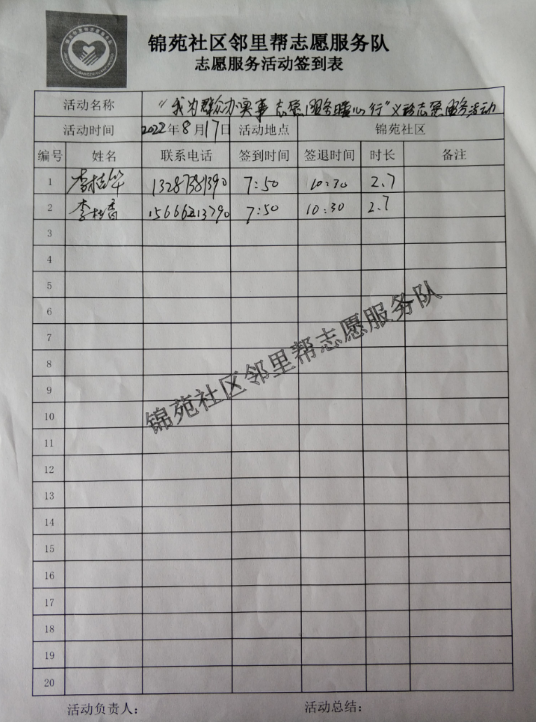 锦苑社区邻里帮志愿服务队
志愿服务活动签到表
活动名称 “我为群众办实事 志愿服务暖心行”义诊志愿服务活动
活动时间 2022年8月17日 活动地点 锦苑社区
编号 姓名 联系电话 签到时间 签退时间 时长 备注
1 李桂华 7:50 10:30 2.7
2 李桂香 15666213790 7:50 10:30 2.7
3
4
5
6
7
8
9
10
11
12
13
14
15
16
17
18
19
20
锦苑社区邻里帮志愿服务队
活动负责人： 活动总结：